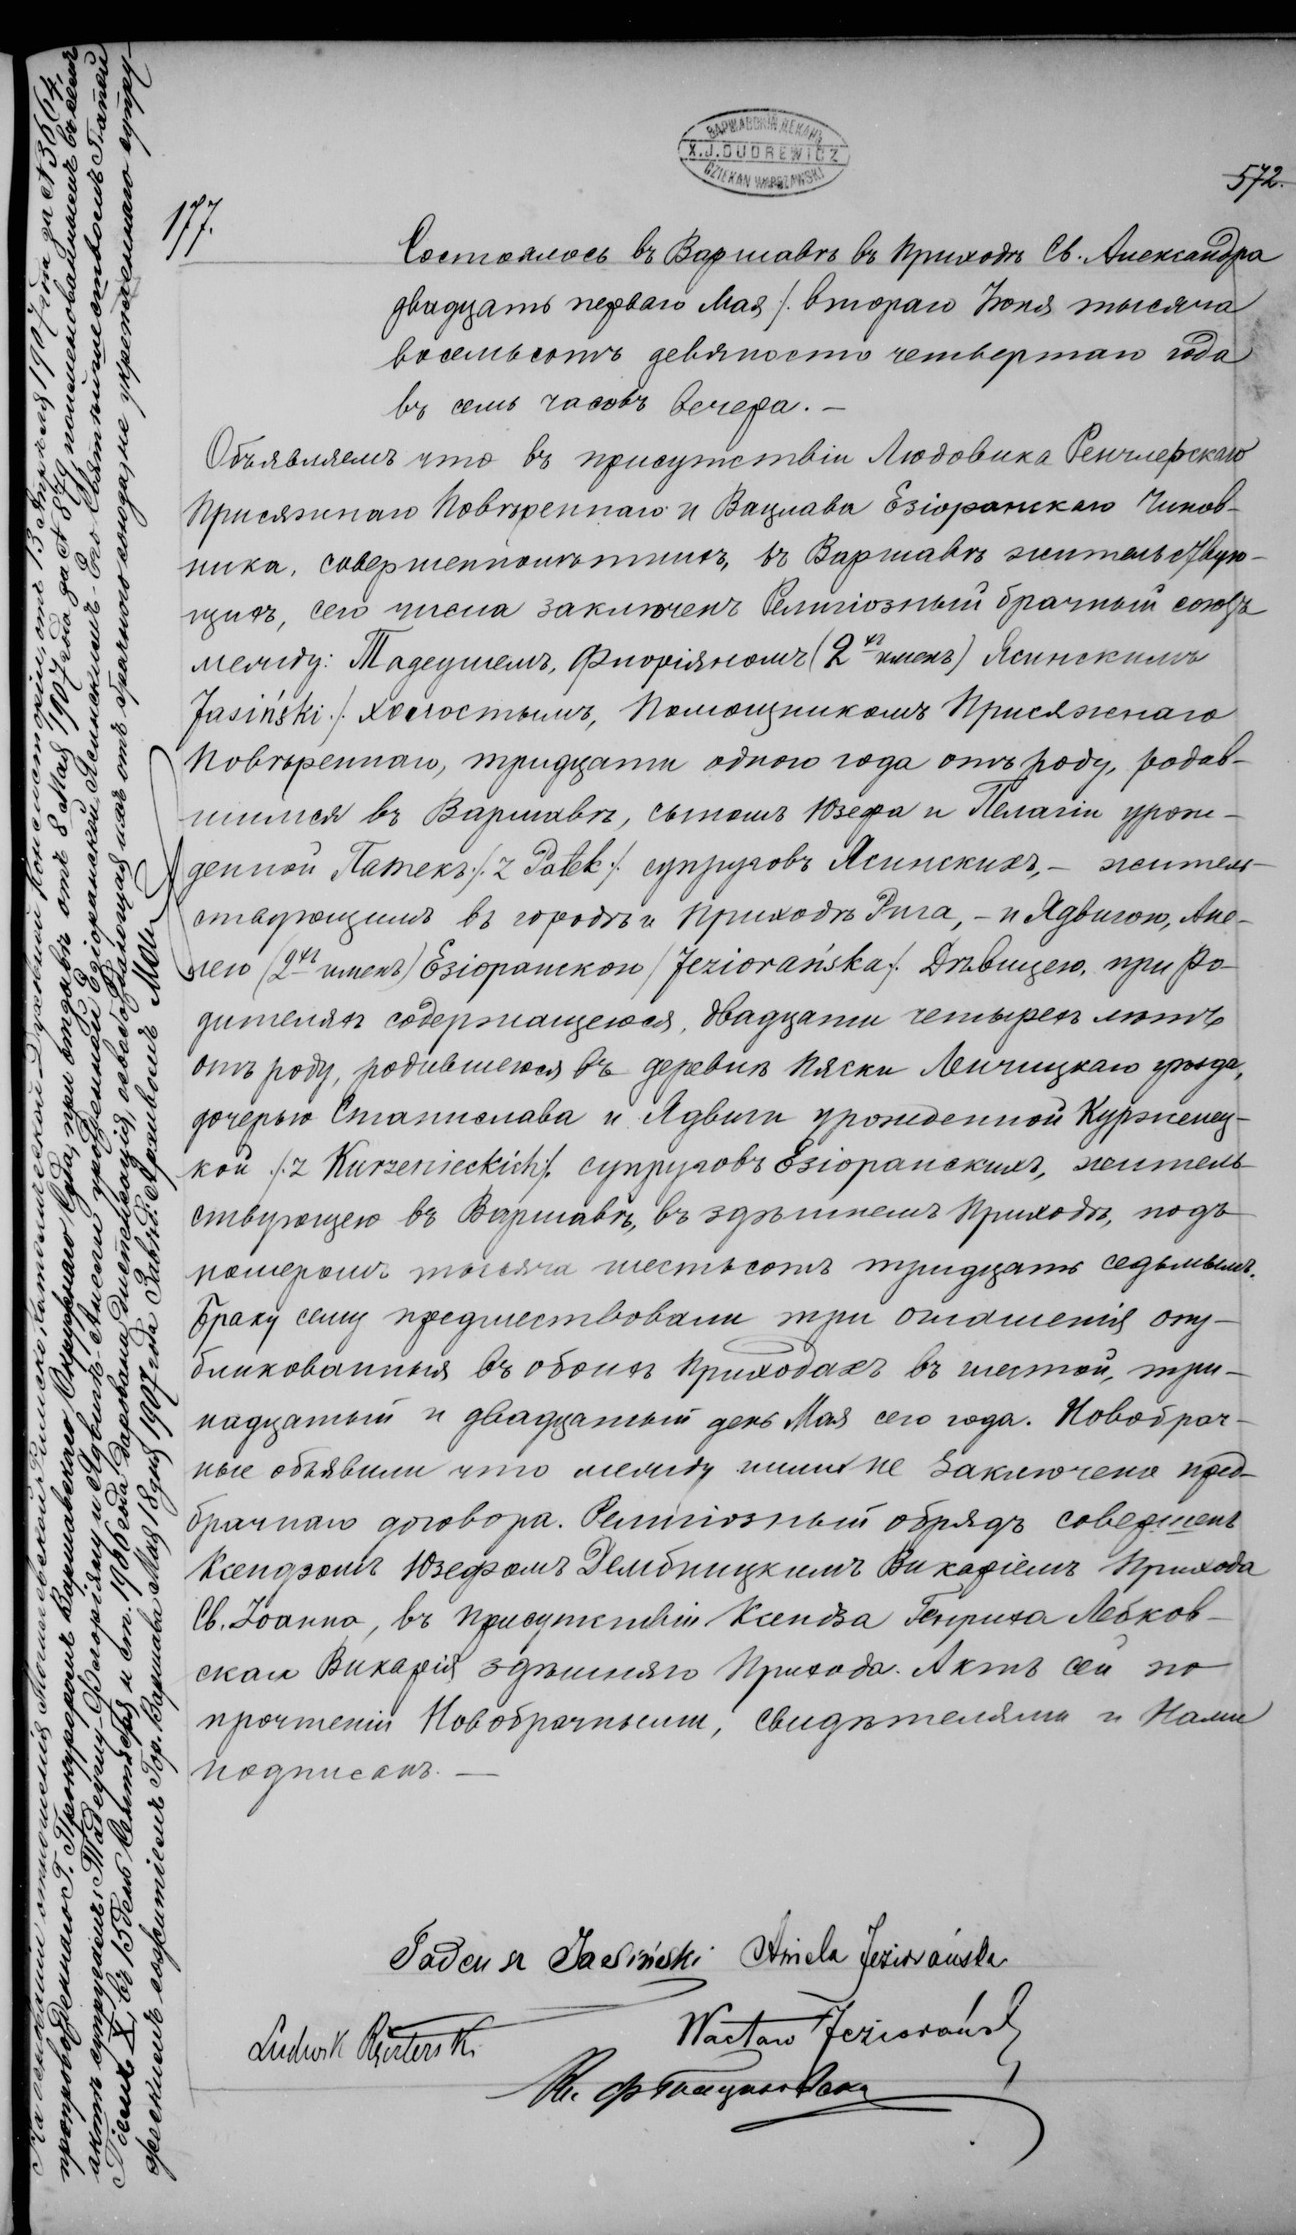 ВАРШАВСКІЙ ДЕКАНЪ
X.J.DUDREWICZ
DZIEKAN WARSZAWSKI
572.
177.
Состоялось въ Варшавѣ въ Приходѣ Св. Александра
двадцать перваго Мая /. втораго Іюня тысяча
восемьсотъ девяносто четвертаго года
въ семь часовъ вечера. —
Объявляемъ что въ присутствіи Людовика
Присяжнаго Повѣреннаго и Вацлава Езіоранскаго Чинов-
ника, совершеннолѣтнихъ, въ Варшавѣ жительствую-
щихъ, сего числа заключенъ Религіозный брачный союзъ
между: Тадеушемъ, Флоріяномъ (2хъ именъ) Ясинскимъ
Jasiński./. холостымъ, Помощникомъ Присяжнаго
Повѣреннаго, тридцати одного года отъ роду, родив-
шимся въ Варшавѣ, сыномъ Юзефа и Пелагіи урож-
денной Патекъ ./. z Patek /. супруговъ Ясинскихъ, — житель-
ствующимъ въ городѣ и Приходѣ Рига, — и Ядвигою, Ане-
лею (2хъ именъ) Езіоранскою /Jeziorańska/. Дѣвицею, при Ро-
дителяхъ содержащеюся, двадцати четырехъ лѣтъ
отъ роду, родившеюся въ деревнѣ Пяски Ленчицкаго уѣзда,
дочерью Станислава и Ядвиги урожденной Курженец-
кой /. z Kurzenieckich /. супруговъ Езіоранскихъ, житель-
ствующею въ Варшавѣ, въ здѣшнемъ Приходѣ, подъ
номеромъ тысяча шестьсотъ тридцать седьмымъ.
Браку сему предшествовали три оглашенія опу-
бликованныя въ обоихъ Приходахъ въ шестой, три-
надцатый и двадцатый день Мая сего года. Новобрач-
ные объявили что между ними не заключено пред-
брачнаго договора. Религіозный обрядъ совершенъ
Ксендзомъ Юзефомъ Дембницкимъ Викаріемъ Прихода
Св. Іоанна, въ присутствіи Ксендза Генриха Лебков-
скаго Викарія здѣшняго Прихода. Актъ сей по
прочтеніи Новобрачными, свидѣтелями и Нами
подписанъ. —
Tadeusz Jasiński Aniela Jeziorańska
Ludwik
Wacław Jeziorański
На основаніи отношенія Могилевской Римско-католической Духовной Консисторіи, отъ 13 Апрѣля 1907 года за № 3664,
препровожденнаго Г. Прокуроромъ Варшавскаго Окружнаго Суда, при отзывѣ отъ 8 Мая 1907 года за № 879 поименованнымъ въ семъ
актѣ супругамъ: Тадеушу-Флоріяну и Ядвигѣ-Анели урожденной Езіоранской Ясинскимъ - Его Святѣйшествомъ Папой
Піемъ X, въ 15 день Сентября н. ст. 1906 года дарована диспенсація, освобождающая ихъ отъ брачнаго союза, не укрѣпленнаго супру-
жескимъ сожитіемъ. Гор. Варшава Мая 18 дня 1907 года Завѣд. Архивомъ